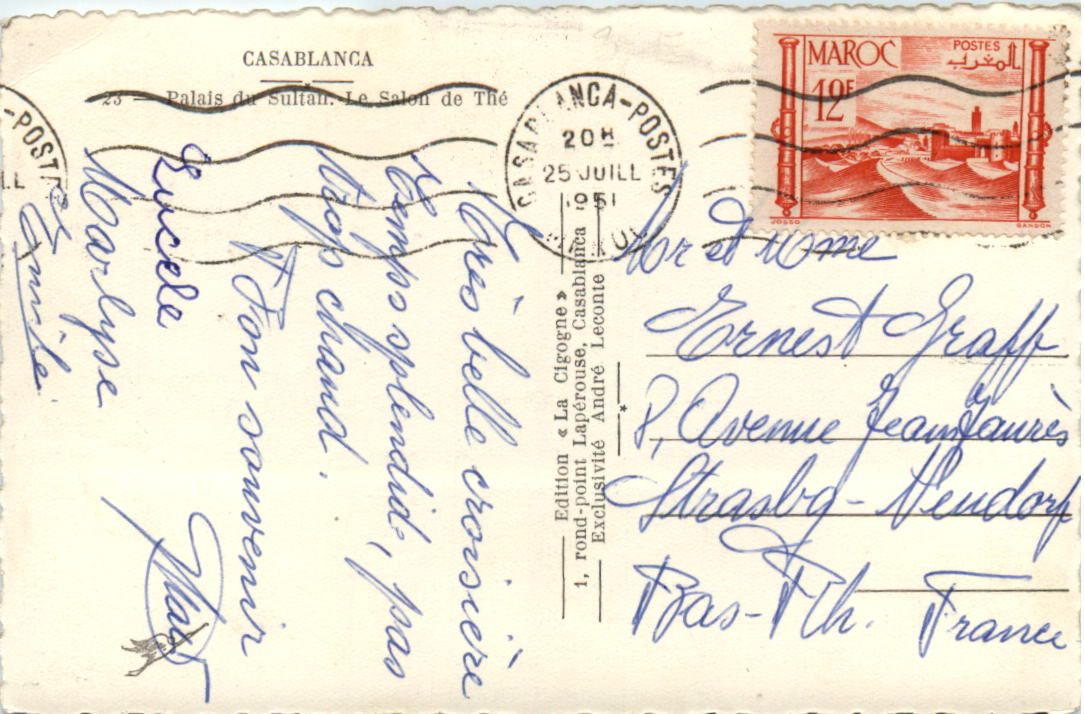 CASABLANCA
23 — Palais du Sultan. Le Salon de Thé
CASABLANCA-POSTES
20H
25 JUILL
1951
MAROC
-POSTES
ILL
MAROC
POSTES
المغرب
12F
JOSSO
GANDON
Très belle croisière
temps splendide, pas
trop chaud.
Bon souvenir
Lucele
Marlyse
Emile.
Edition « La Cigogne »
1, rond-point Lapérouse, Casablanca
Exclusivité André Leconte
*
Mr et Mme
Ernest Graff
8, Avenue Jean Jaurès
Strasbg - Neudorf
Bas-Rh. France